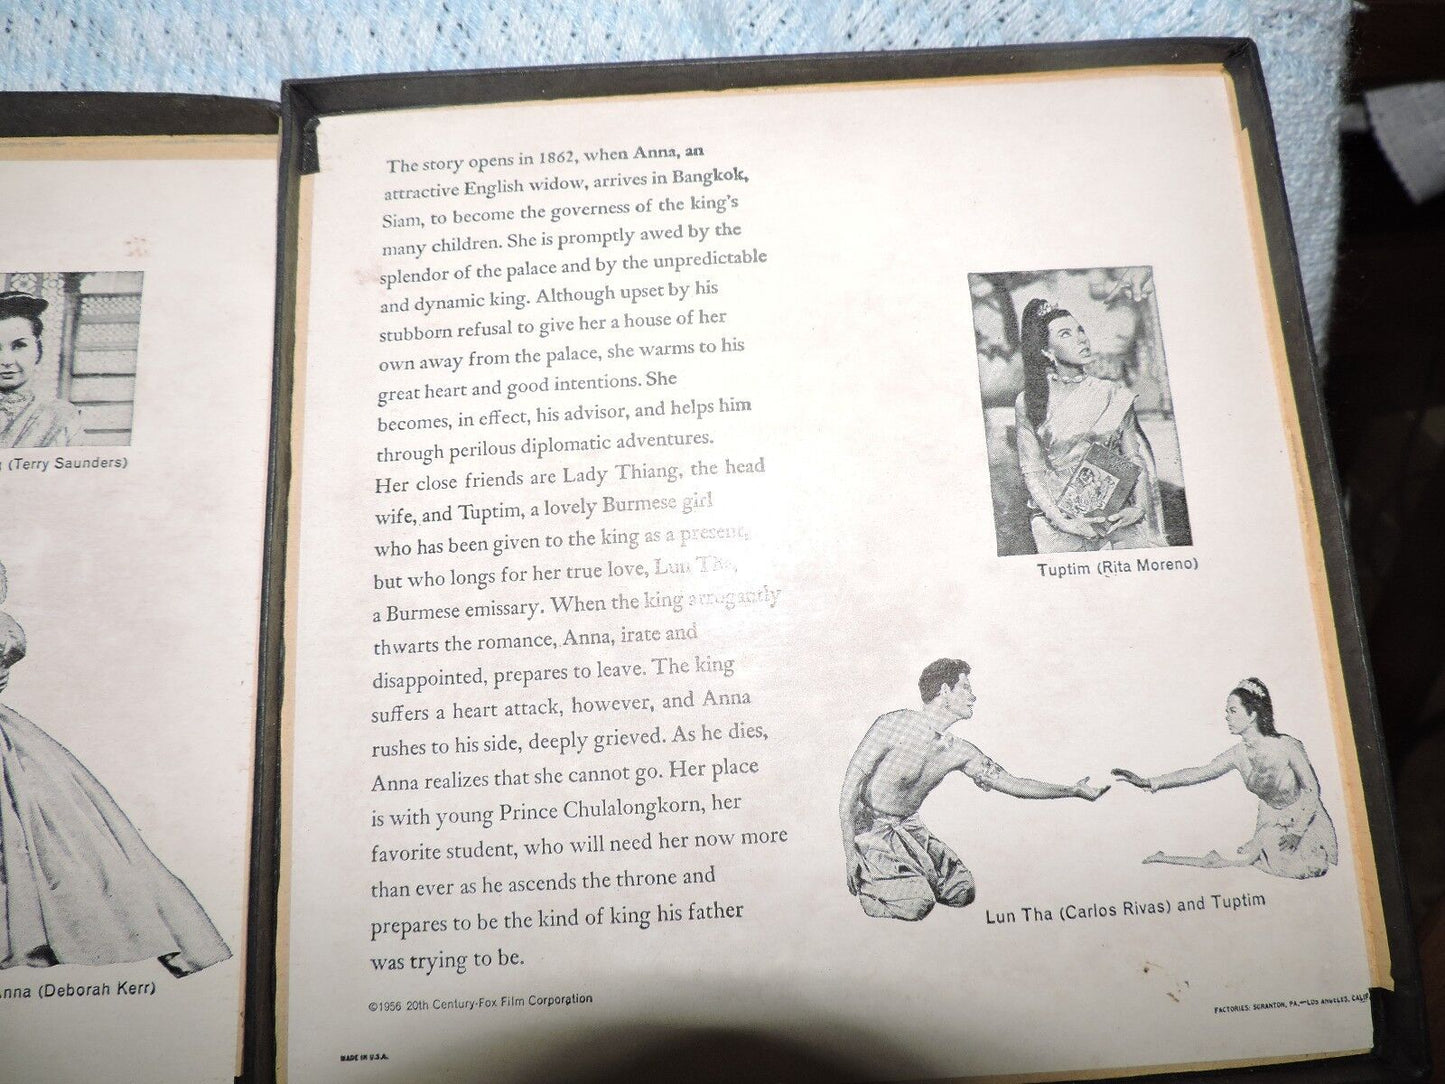 The story opens in 1862, when Anna, an
attractive English widow, arrives in Bangkok,
Siam, to become the governess of the king's
many children. She is promptly awed by the
splendor of the palace and by the unpredictable
and dynamic king. Although upset by his
stubborn refusal to give her a house of her
own away from the palace, she warms to his
great heart and good intentions. She
becomes, in effect, his advisor, and helps him
through perilous diplomatic adventures.
Her close friends are Lady Thiang, the head
wife, and Tuptim, a lovely Burmese girl
who has been given to the king as a present,
but who longs for her true love, Lun Tha,
a Burmese emissary. When the king arrogantly
thwarts the romance, Anna, irate and
disappointed, prepares to leave. The king
suffers a heart attack, however, and Anna
rushes to his side, deeply grieved. As he dies,
Anna realizes that she cannot go. Her place
is with young Prince Chulalongkorn, her
favorite student, who will need her now more
than ever as he ascends the throne and
prepares to be the kind of king his father
was trying to be.
©1956 20th Century-Fox Film Corporation
MADE IN U.S.A.
(Terry Saunders)
Anna (Deborah Kerr)
Tuptim (Rita Moreno)
Lun Tha (Carlos Rivas) and Tuptim
FACTORIES: SCRANTON, PA.—LOS ANGELES, CALIF